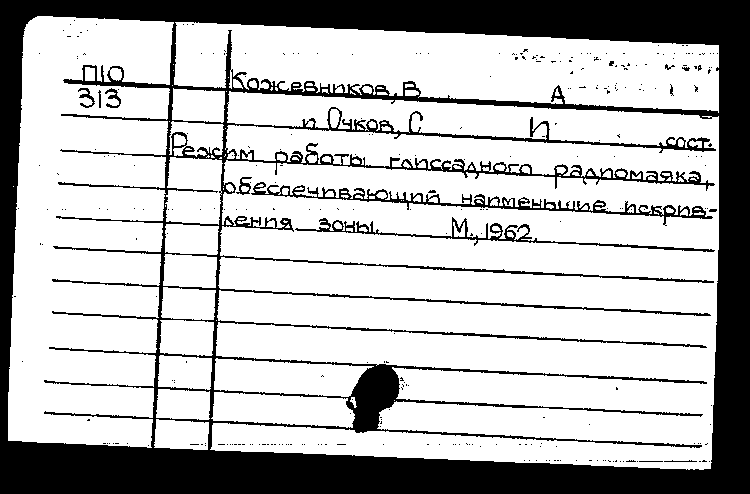 П10
313
Кожевников, В А
и Очков, С И , сост.
Режим работы глиссадного радиомаяка,
обеспечивающий наименьшие искрив-
ления зоны. М., 1962.